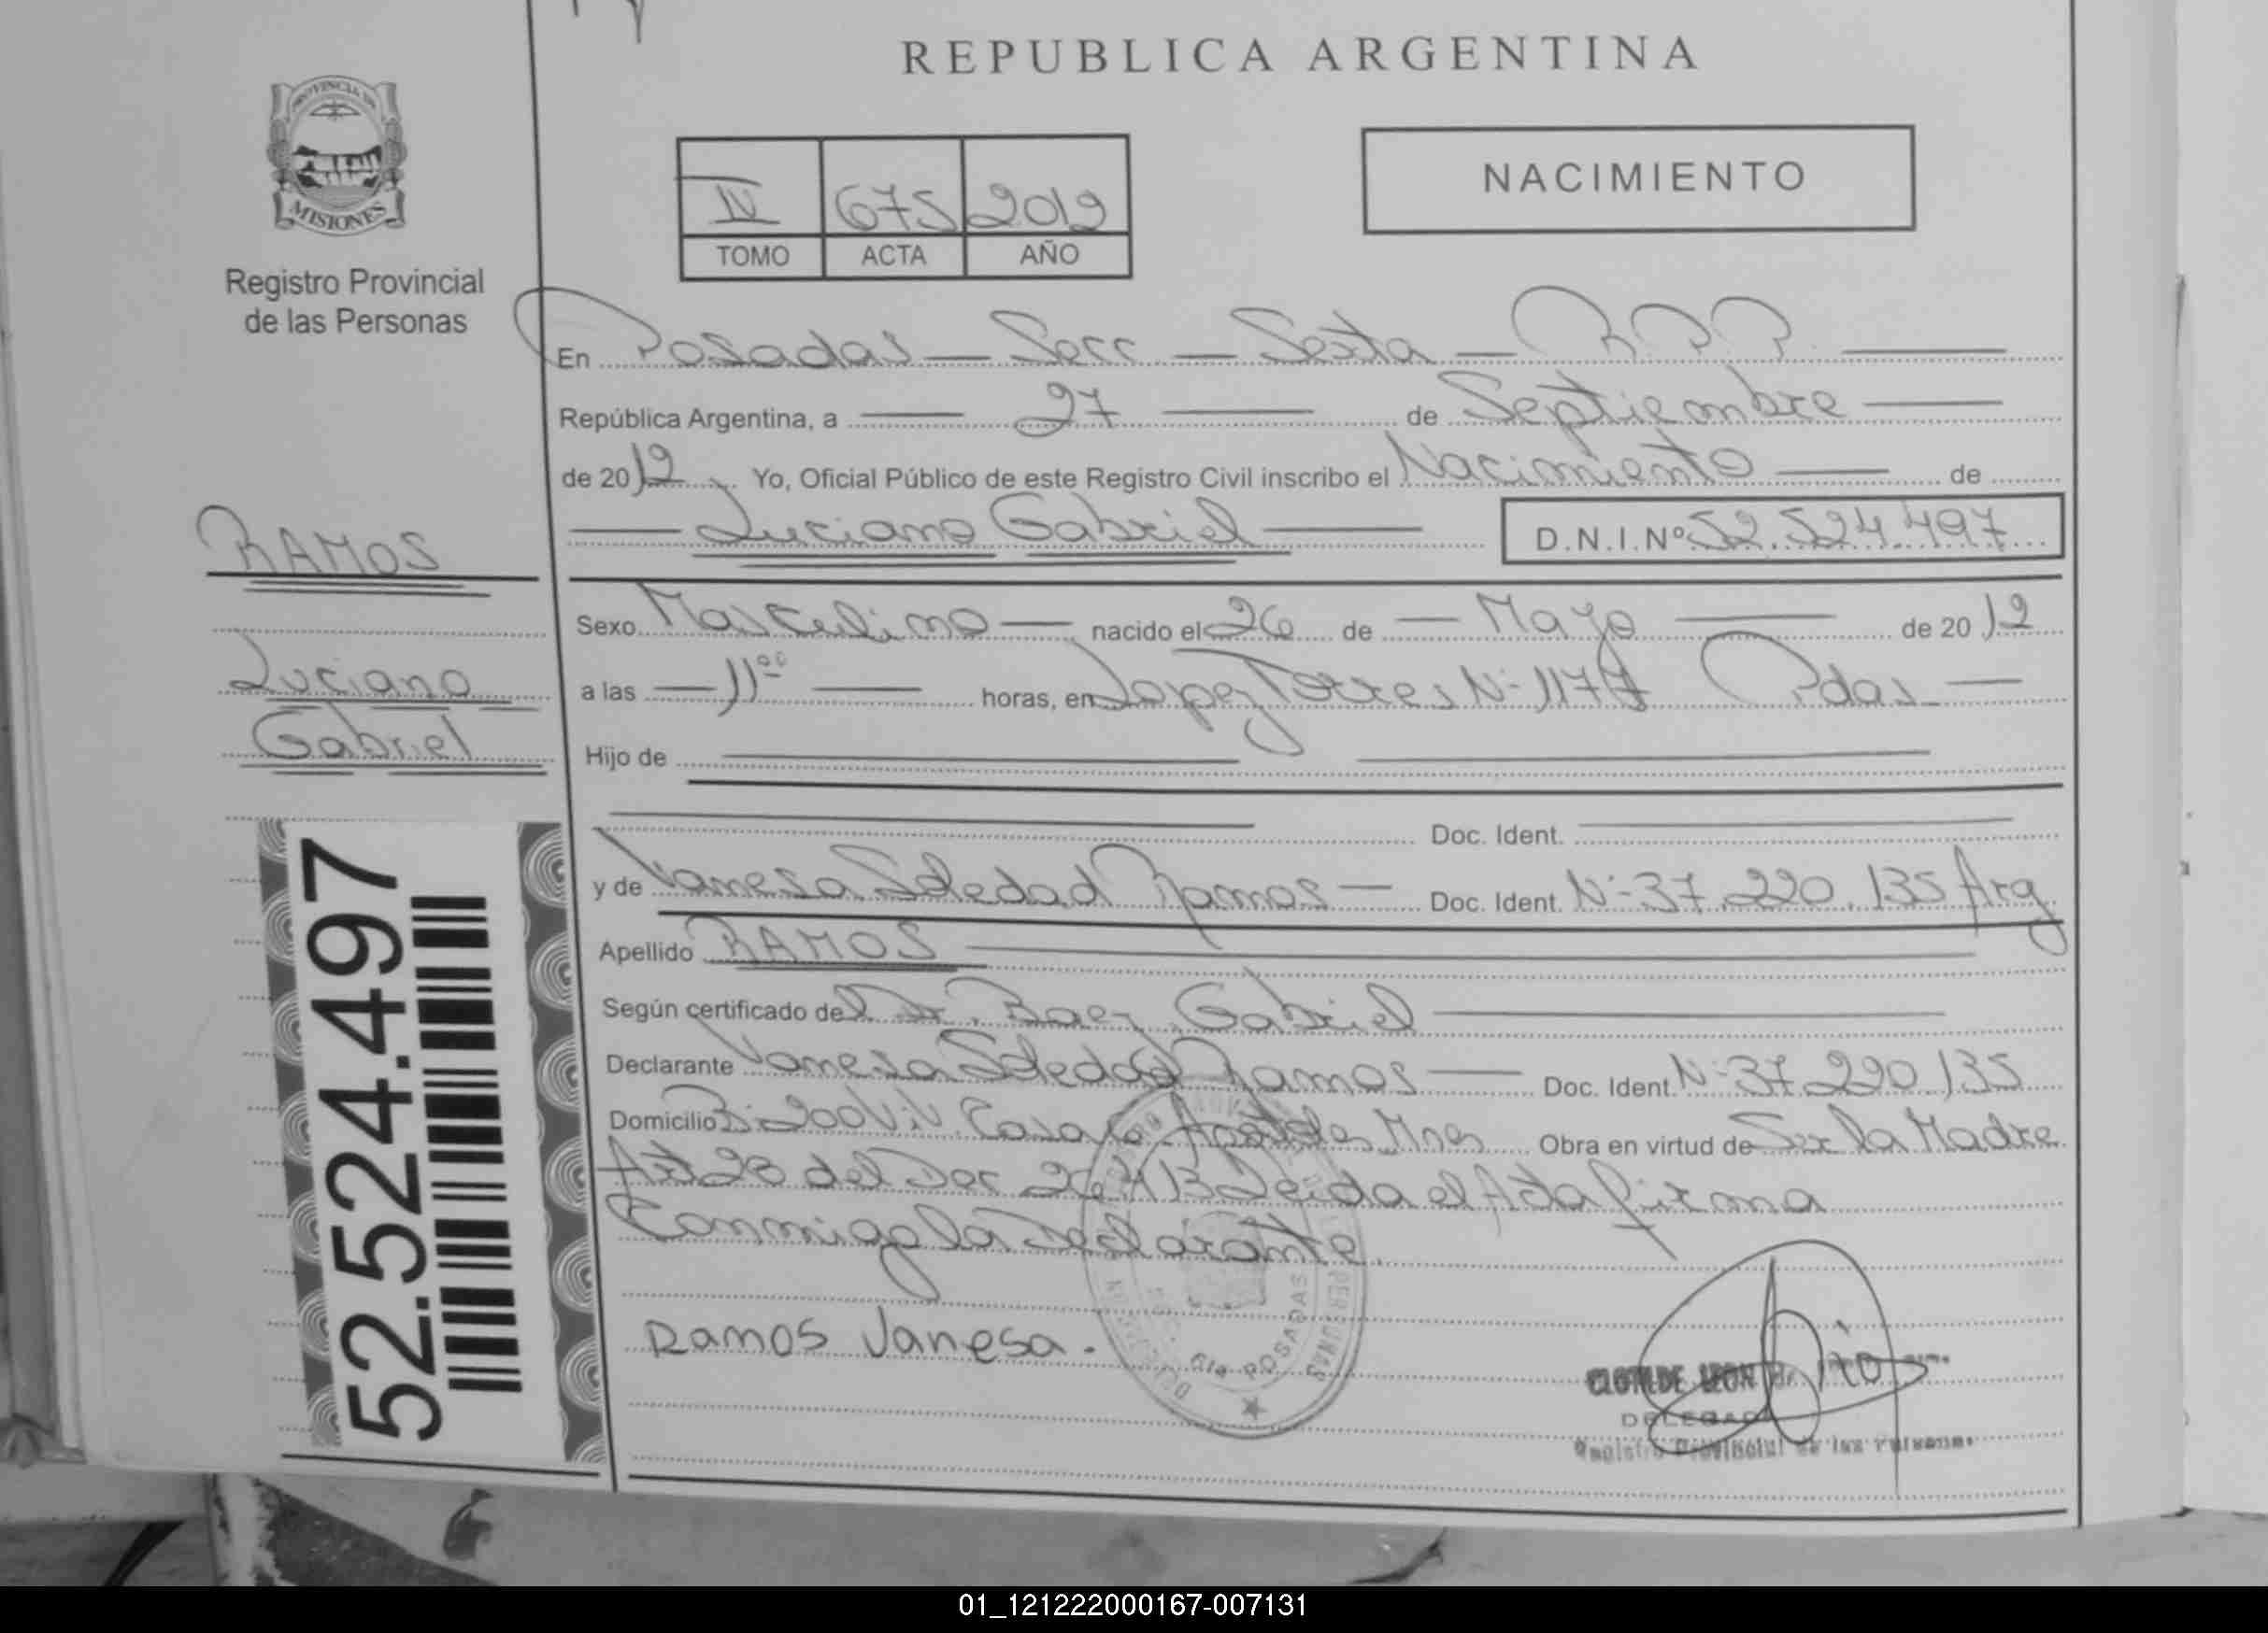 REPUBLICA ARGENTINA
PROVINCIA DE
MISIONES
Registro Provincial
de las Personas
IV 675 2012
TOMO ACTA AÑO
NACIMIENTO
En Posadas — Secc — Sexta — R.P.P.
República Argentina, a 27 de Septiembre
de 2012 Yo, Oficial Público de este Registro Civil inscribo el Nacimiento de
Luciano Gabriel D.N.I.Nº 52.524.497
RAMOS
Luciano
Gabriel
Sexo Masculino nacido el 26 de Mayo de 2012
a las 11°° horas, en Lopez Torres N° 1177 Pdas
Hijo de
Doc. Ident.
y de Vanesa Soledad Ramos Doc. Ident. N° 37.220.135 Arg
Apellido RAMOS
Según certificado del Dr. Baez Gabriel
Declarante Vanesa Soledad Ramos Doc. Ident. N° 37.220.135
Domicilio B° 200 Viv. Casa Apostoles Mnes Obra en virtud de Ser la Madre
Art 28 del Dec Leida el Acta firma
Conmigo la Declarante.
Ramos Vanesa.
52.524.497
POSADAS
CLOTILDE LEON
DELEGADA
Registro Provincial de las Personas
01_121222000167-007131